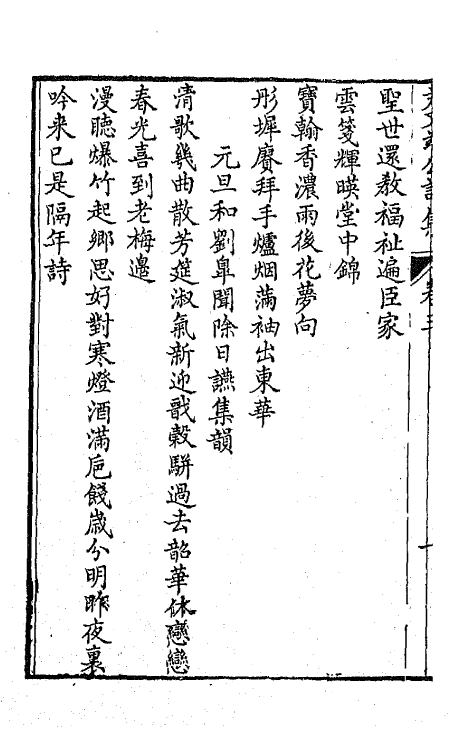 聖世還教福祉遍臣家
雲箋輝暎堂中錦
寶翰香濃雨後花夢向
彤墀賡拜手爐烟滿袖出東華
元旦和劉臯聞除日讌集韻
清歌幾曲散芳筵淑氣新迎戩穀駢過去韶華休戀戀
春光喜到老梅邊
漫聽爆竹起鄉思好對寒燈酒滿巵餞歲分明昨夜裏
吟來已是隔年詩